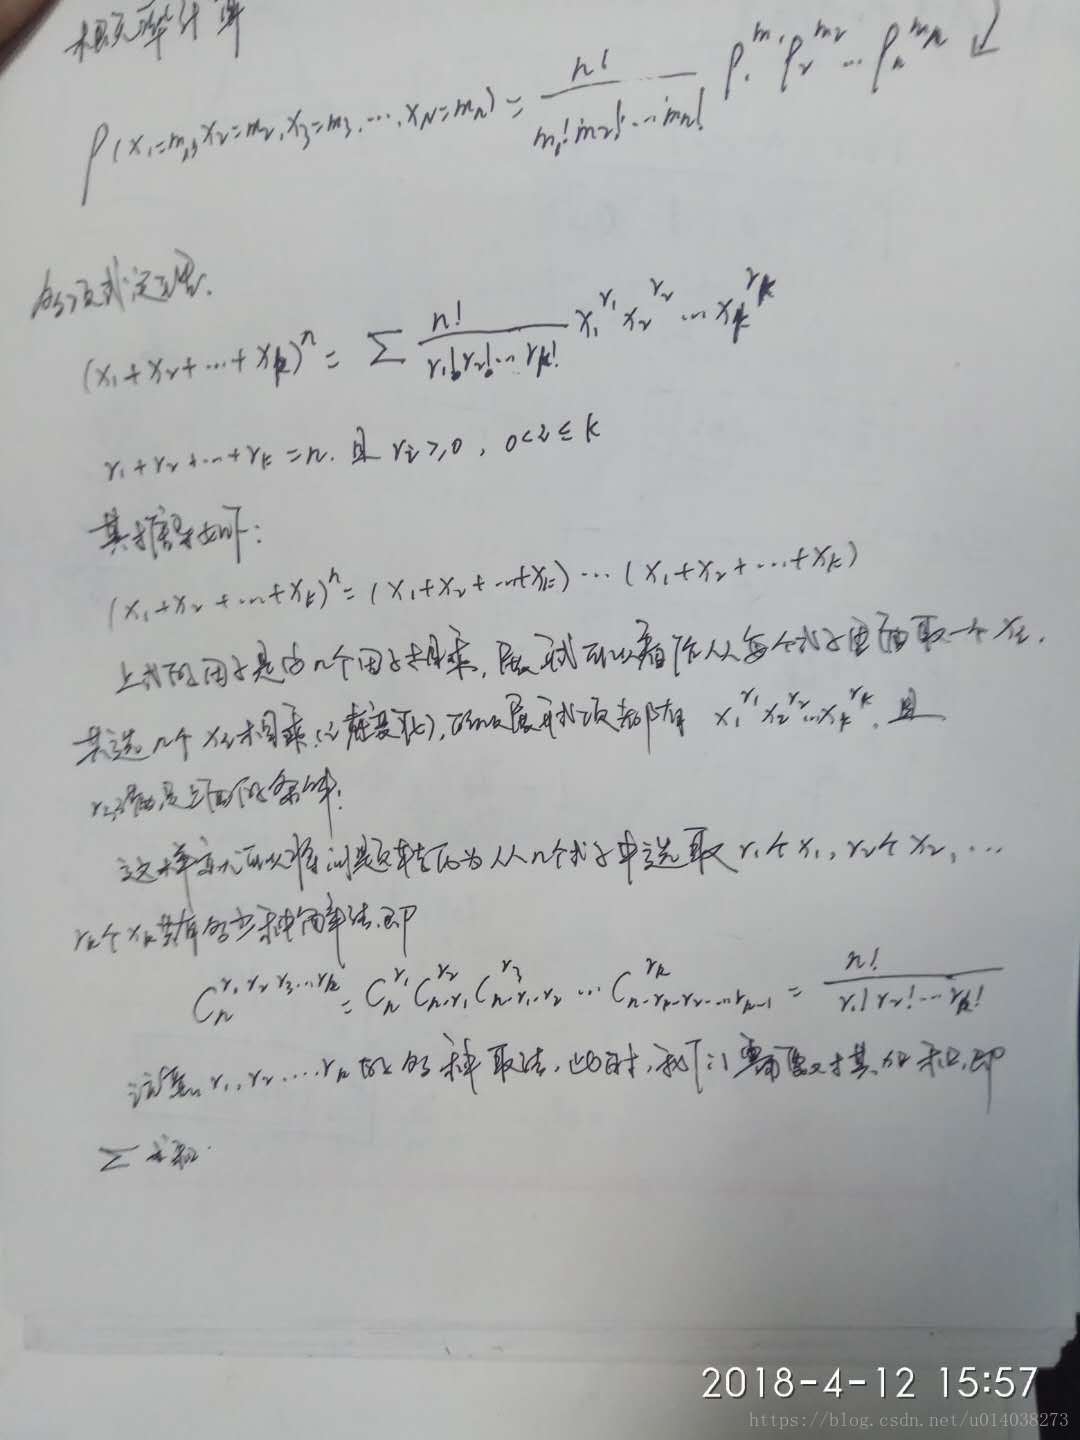 概率计算
P(x₁=m₁, x₂=m₂, x₃=m₃, ..., x_N=m_n) = n! / (m₁! m₂! ... m_n!) p₁^m₁ p₂^m₂ ... p_n^m_n
多项式定理.
(x₁+x₂+...+x_k)^n = Σ n! / (r₁! r₂! ... r_k!) x₁^r₁ x₂^r₂ ... x_k^r_k
r₁+r₂+...+r_k=n. 且 r_i≥0, 0<i≤k
其推导如下:
(x₁+x₂+...+x_k)^n = (x₁+x₂+...+x_k) ... (x₁+x₂+...+x_k)
上式的因子是由n个因子相乘, 展式可以看作从每个式子里面取一个x_i.
共选n个x_i相乘, 展式项都有 x₁^r₁ x₂^r₂ ... x_k^r_k, 且
r_i满足上面的条件.
这样就可以将问题转化为从n个式子中选取 r₁个x₁, r₂个x₂, ...
r_k个x_k共有多少种简单法. 即
C_n^{r₁ r₂ r₃...r_k} = C_n^{r₁} C_{n-r₁}^{r₂} C_{n-r₁-r₂}^{r₃} ... C_{n-r₁-r₂-...r_{k-1}}^{r_k} = n! / (r₁! r₂! ... r_k!)
注意, r₁, r₂ .... r_k 有多种取法, 此时, 我们需要对其加和, 即
Σ 求和.
2018-4-12 15:57
https://blog.csdn.net/u014038273